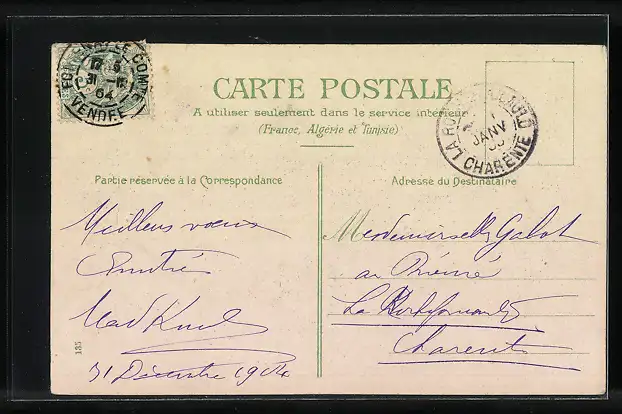 FONTENAY-LE-COMTE
31
04
VENDÉE
CARTE POSTALE
A utiliser seulement dans le service intérieur
(France, Algérie et Tunisie)
LA ROCHEFOUCAULD
JANV
CHARENTE
Partie réservée à la Correspondance
Adresse du Destinataire
Meilleurs vœux
Amitiés
31 Décembre 1904
Mesdemoiselles Gabot
au
La Rochefoucauld
Charente
135